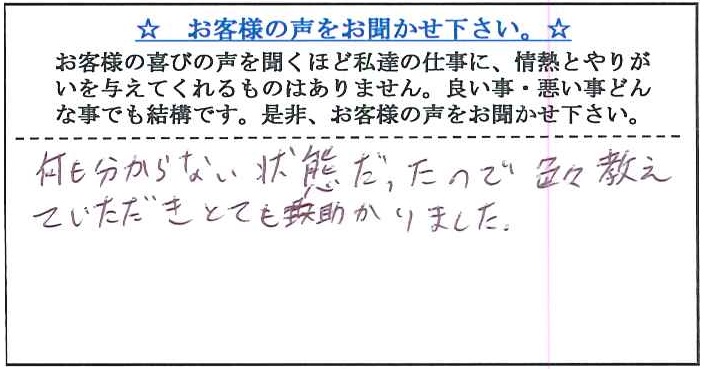 ☆ お客様の声をお聞かせ下さい。☆
お客様の喜びの声を聞くほど私達の仕事に、情熱とやりが
いを与えてくれるものはありません。良い事・悪い事どん
な事でも結構です。是非、お客様の声をお聞かせ下さい。
何も分からない状態だったので色々教え
ていただきとても助かりました。